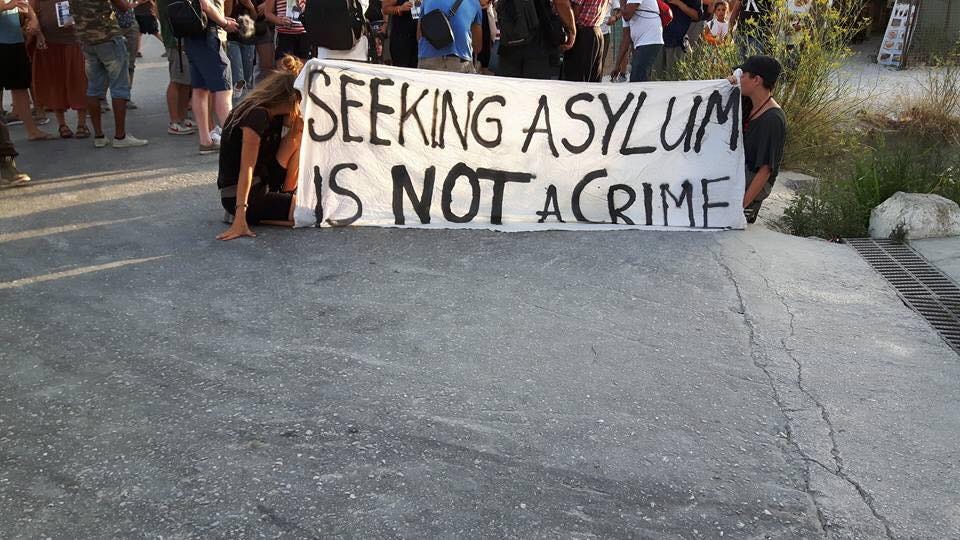 SEEKING ASYLUM
IS NOT A CRIME